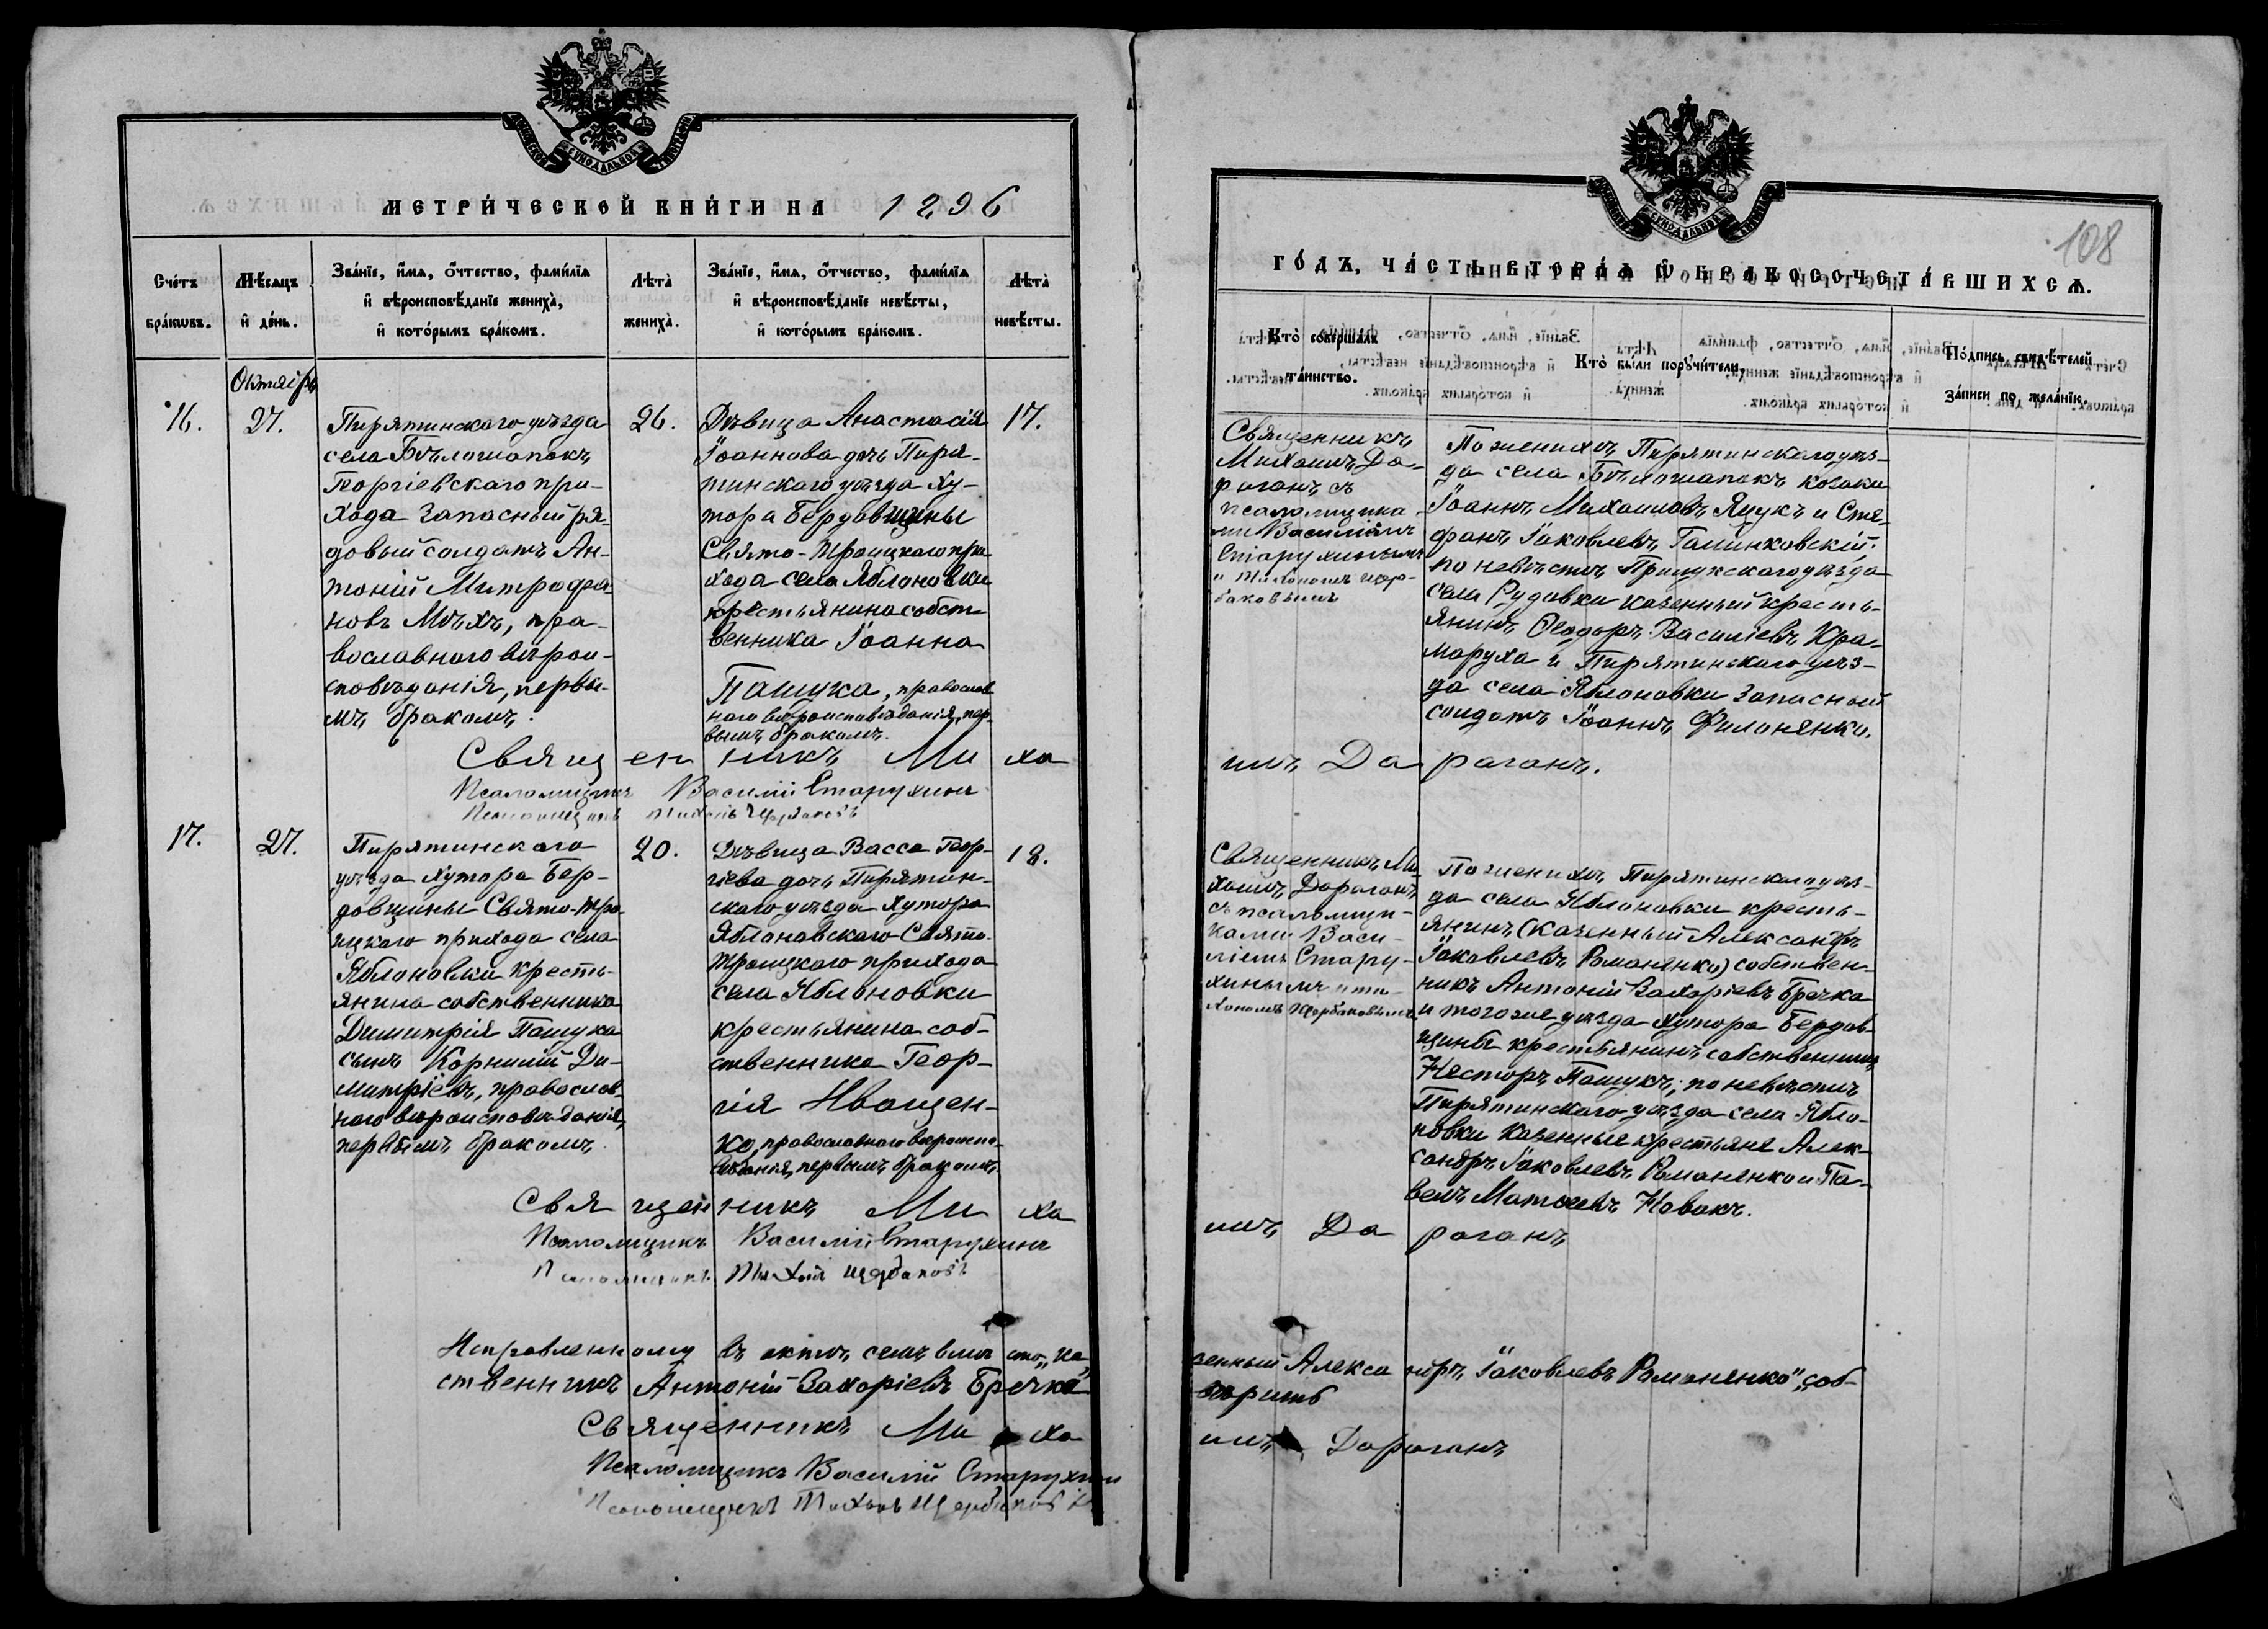 МЕТРИЧЕСКОЙ КНИГИ НА 1896
Счетъ
браковъ.
Мѣсяцъ
и день.
Званіе, имя, отчество, фамилія
и вѣроисповѣданіе жениха,
и которымъ бракомъ.
Лѣта
жениха.
Званіе, имя, отчество, фамилія
и вѣроисповѣданіе невѣсты,
и которымъ бракомъ.
Лѣта
невѣсты.
Октябрь
16.
27.
Пирятинскаго уѣзда
села Бѣлошапокъ
Георгіевскаго при-
хода запасный ря-
довый солдатъ Ан-
тоній Митрофа-
новъ Мѣхъ, пра-
вославнаго вѣрои-
сповѣданія, первы-
мъ бракомъ.
26.
Дѣвица Анастасія
Іоаннова дочь Пиря-
тинскаго уѣзда ху-
тора Бердовщины
Свято-Троицкаго при-
хода села Яблоновки
крестьянина собст-
венника Іоанна
Пащука, православ-
наго вѣроисповѣданія, пер-
вымъ бракомъ.
17.
Священникъ Миха
Псаломщикъ Василій Старухинъ
Псаломщикъ Тихонъ Щербаковъ
17.
27.
Пирятинскаго
уѣзда хутора Бер-
довщины Свято-Тро-
ицкаго прихода села
Яблоновки кресть-
янина собственника
Димитрія Пащука
сынъ Корнилій Ди-
митріевъ, православ-
наго вѣроисповѣданія,
первымъ бракомъ.
20.
Дѣвица Васса Геор-
гіева дочь Пирятин-
скаго уѣзда хутора
Яблоновскаго Свято-
Троицкаго прихода
села Яблоновки
крестьянина соб-
ственника Геор-
гія Иващен-
ко, православнаго вѣроиспо-
вѣданія, первымъ бракомъ.
18.
Священникъ Миха
Псаломщикъ Василій Старухинъ
Псаломщикъ Тихонъ Щербаковъ
Исправленному въ актѣ семъ вмѣсто „ка
ственникъ Антоній Захаріевъ Бречка"
Священникъ Миха
Псаломщикъ Василій Старухинъ
Псаломщикъ Тихонъ Щербаковъ
108
ГОДЪ, ЧАСТЬ ВТОРАЯ О БРАКОСОЧЕТАВШИХСЯ.
Кто совершалъ
таинство.
Кто были поручители.
Подпись свидѣтелей
записи по желанію.
Священникъ
Михаилъ Да-
раганъ съ
псаломщика-
ми Василіемъ
Старухинымъ
и Тихономъ Щер-
баковымъ
По женихѣ Пирятинскаго уѣз-
да села Бѣлошапокъ козаки
Іоаннъ Михаиловъ Яцукъ и Сте-
фанъ Іаковлевъ Галинковскій.
по невѣстѣ Прилукскаго уѣзда
села Рудовки казенный кресть-
янинъ Ѳеодоръ Василіевъ Кра-
маруха и Пирятинскаго уѣз-
да села Яблоновки запасный
солдатъ Іоаннъ Филоненко.
илъ Дараганъ.
Священникъ Ми-
хаилъ Дараганъ
съ псаломщи-
ками Васи-
ліемъ Стару-
хинымъ и Ти-
хономъ Щербаковымъ
По женихѣ Пирятинскаго уѣз-
да села Яблоновки кресть-
янинъ (казенный Александръ
Іаковлевъ Романенко) собствен-
никъ Антоній Захаріевъ Бречка
и тогоже уѣзда хутора Бердов-
щины крестьянинъ собственникъ
Несторъ Пащукъ; по невѣстѣ
Пирятинскаго уѣзда села Ябло-
новки казенные крестьяне Алек-
сандръ Іаковлевъ Романенко и Па-
велъ Матѳеевъ Новакъ.
илъ Дараганъ
зенный Александръ Іаковлевъ Романенко", „соб-
вѣрить
илъ Дараганъ